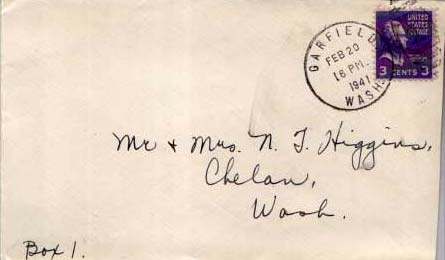 GARFIELD
FEB 20
16 PM
1941
WASH.
UNITED
STATES
POSTAGE
3 CENTS 3
Mr + Mrs. N. T. Higgins,
Chelan,
Wash.
Box 1.